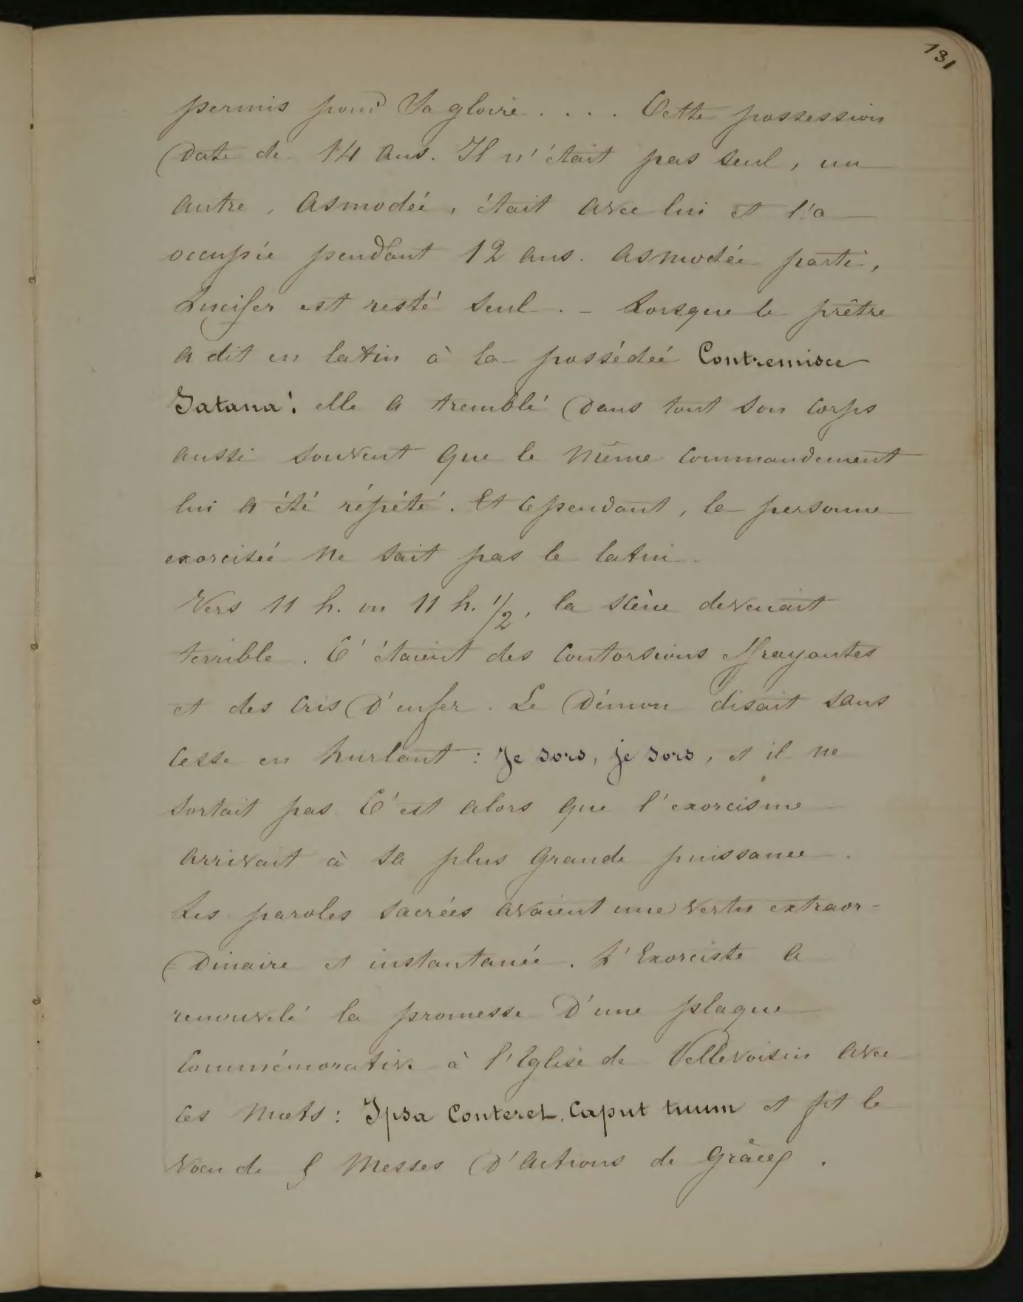 131
permis pour Sa gloire . . . . Cette possession
Date de 14 ans. Il n'était pas seul, un
autre, Asmodée, était avec lui et l'a
occupée pendant 12 ans. Asmodée parti,
Lucifer est resté seul. - Lorsque le prêtre
a dit en latin à la possédée Contremisce
Satana! elle a tremblé Dans tout son corps
aussi souvent que le même commandement
lui a été répété. Et cependant, la personne
exorcisée ne sait pas le latin.
Vers 11 h. ou 11 h. 1/2, la scène devenait
terrible. C'étaient des contorsions effrayantes
et des cris D'enfer. Le Démon disait sans
cesse en hurlant : Je sors, je sors, et il ne
sortait pas. C'est alors que l'exorcisme
arrivait à sa plus grande puissance.
Les paroles sacrées avaient une vertu extraor-
Dinaire et instantanée. L'Exorciste a
renouvelé la promesse D'une plaque
commémorative à l'Eglise de Pellevoisin avec
ces mots : Ipsa Conteret Caput tuum et fit le
voeu de 5 Messes D'Actions de Grâces.